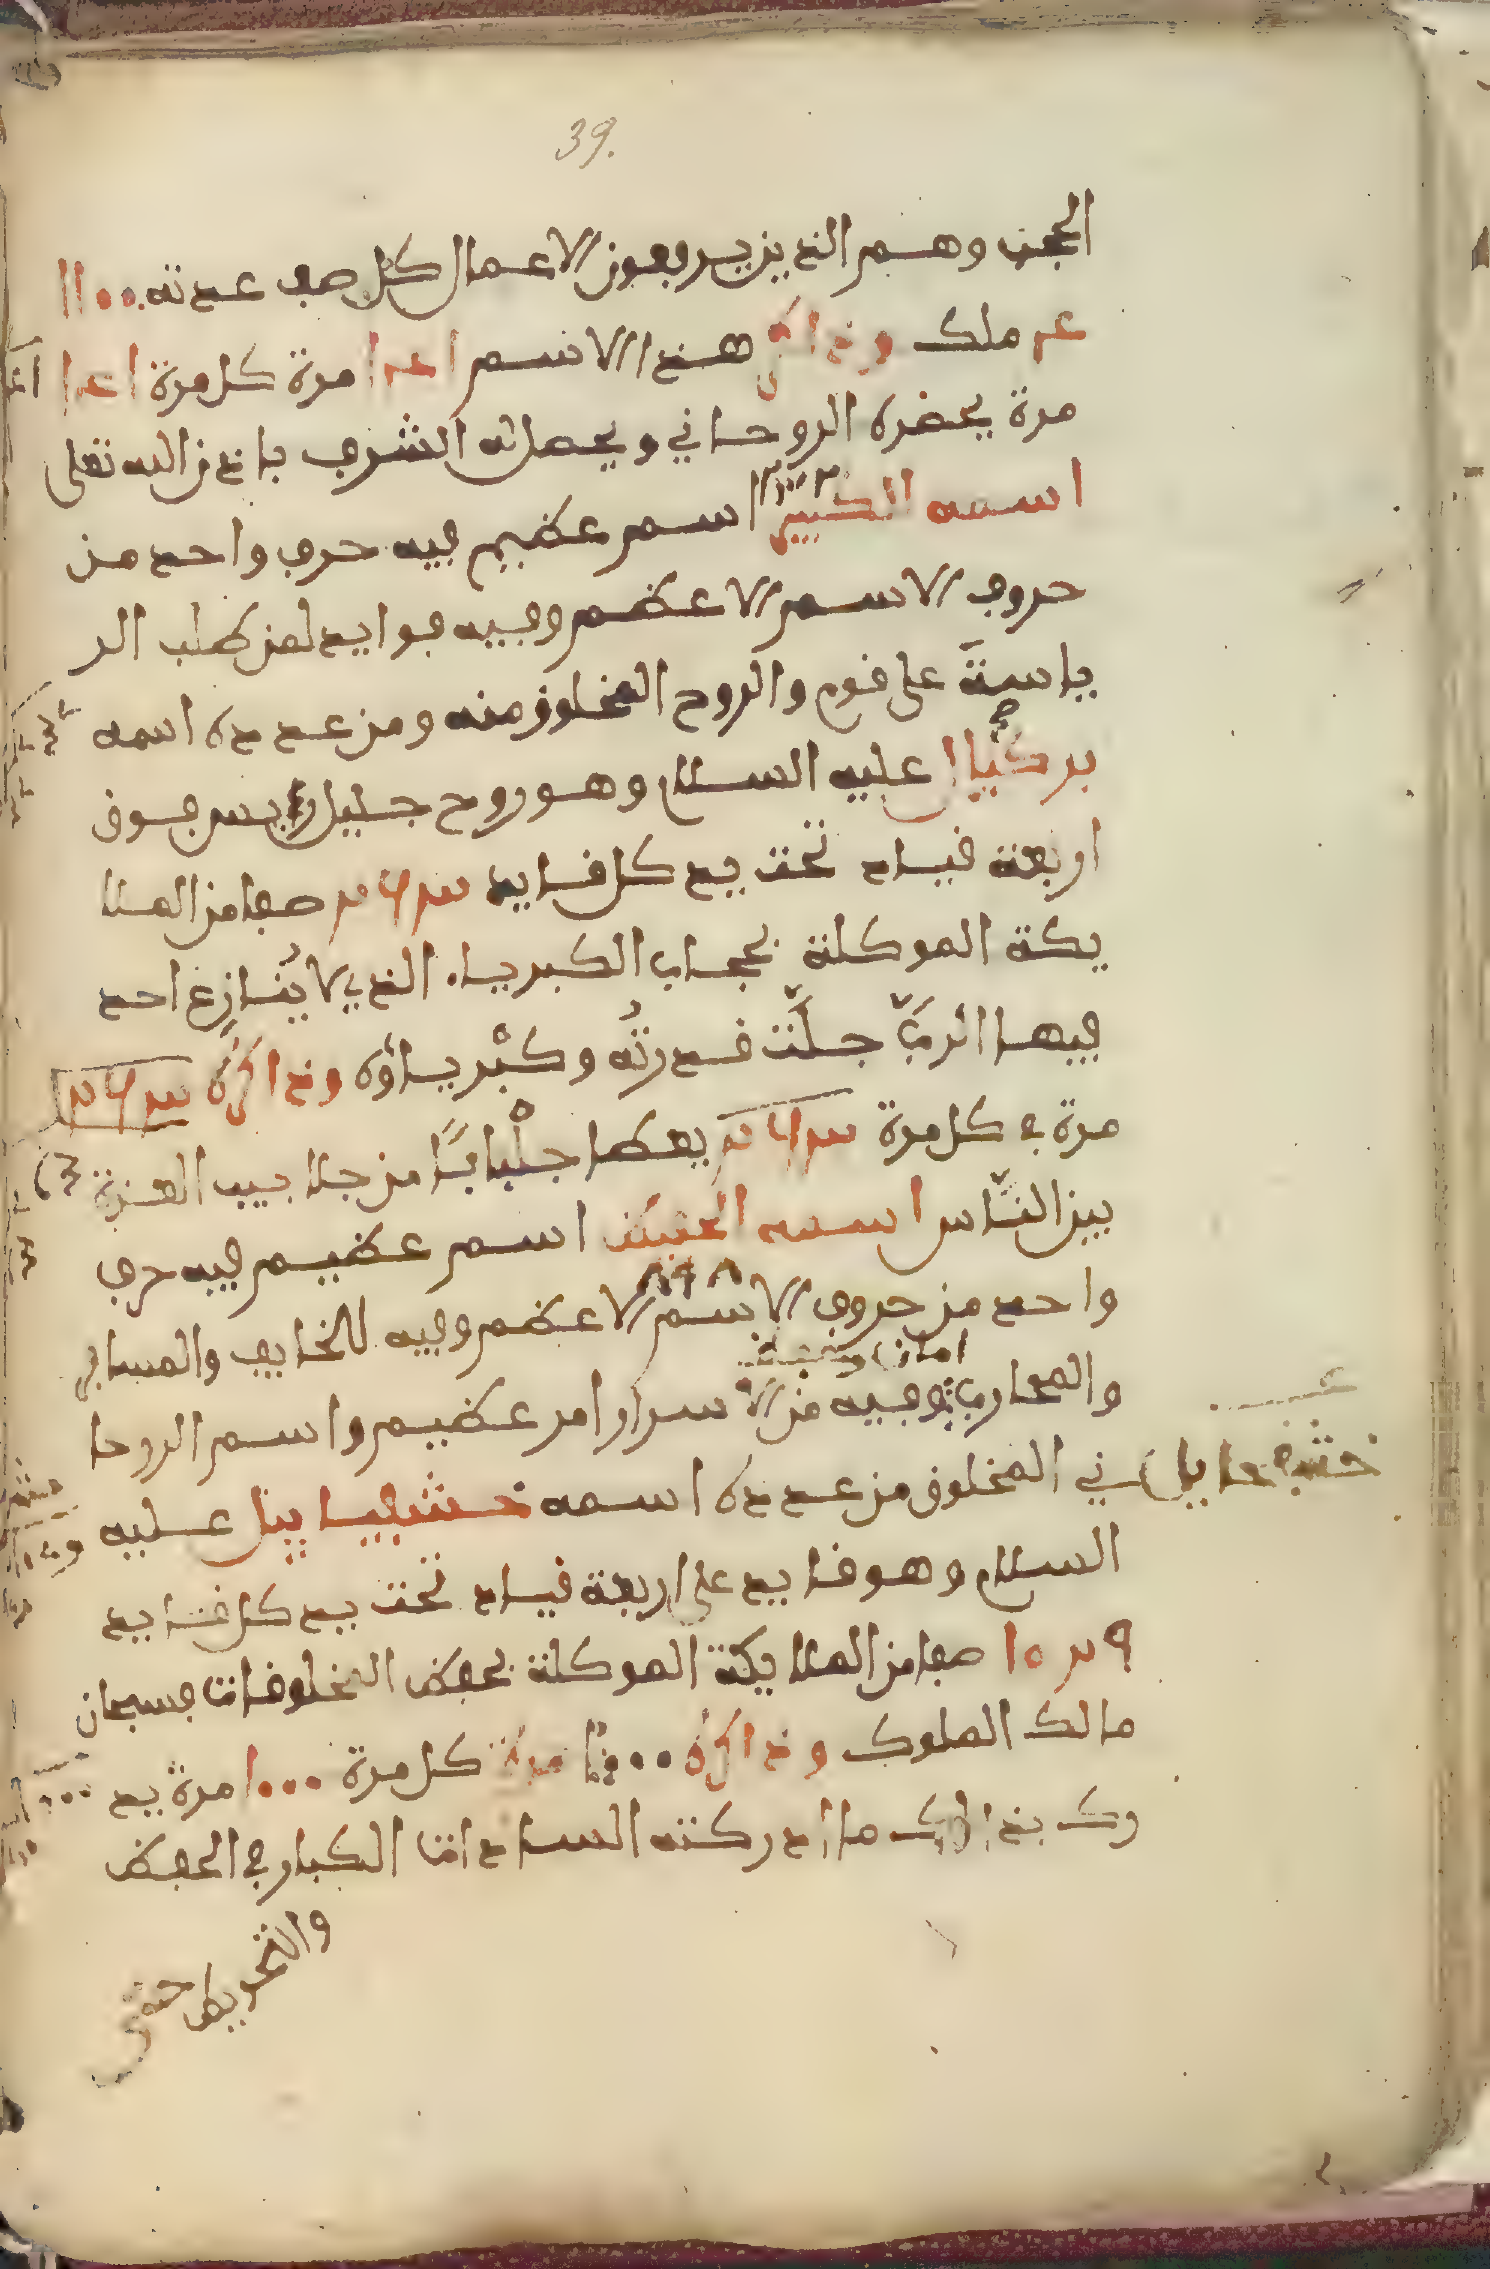 39.
الجن وهم الذين يرفعون الاعمال كل صف عدته
ملك وذاكر هذا الاسم مرة كل مرة
مرة يحضره الروحاني ويحصل له الشرف باذن الله تعلى
اسمه الكبير اسم عظيم فيه حرف واحد من
حروف الاسم الاعظم وفيه فوايد لمن طلب الر
ياسة على قوم والروح المخلوق منه ومن عدده اسمه
عليه السلام وهو روح جليل
اربعة قياد تحت يد كل قايد صفا من الملا
يكة الموكلة بحجاب الكبرياء الذي لا يُنازِع احد
فيها الربّ جلَّت قدرتُه وكبْرياؤه وذاكره
مرة في كل مرة يعطا جلْبابًا من جلابيب العزة
بين النَّاس اسمه الحفيظ اسم عظيم فيه حرف
٨٩٨
واحد من حروف الاسم الاعظم وفيه للخايف والمسافر
امان
والمحارب وفيه من الاسرار امر عظيم واسم الروحا
ني المخلوق من عدده اسمه عليه
السلام وهو قايد على اربعة قياد تحت يد كل قايد
صفا من الملايكة الموكلة بحفظ المخلوقات فسبحان
مالك الملوك وذاكره مرة كل مرة مرة يد
رك بذالك ما ادركته السادات الكبار في الحفظ